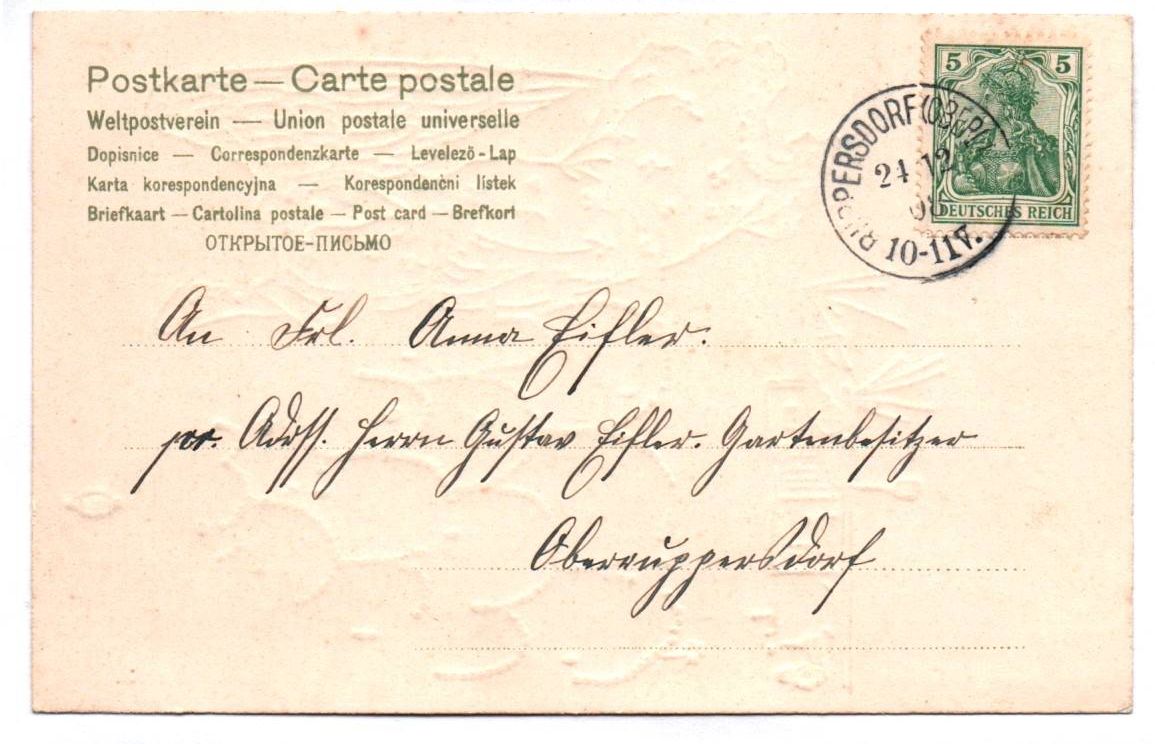 Postkarte — Carte postale
Weltpostverein — Union postale universelle
Dopisnice — Correspondenzkarte — Levelező-Lap
Karta korespondencyjna — Korespondenční lístek
Briefkaart — Cartolina postale — Post card — Brefkort
ОТКРЫТОЕ-ПИСЬМО
5 5
DEUTSCHES REICH
RUPPERSDORF (OBERL.)
24 12
10-11V.
An Frl. Anna Eifler.
pr. Adrss. Herrn Gustav Eifler. Gartenbesitzer
Oberruppersdorf